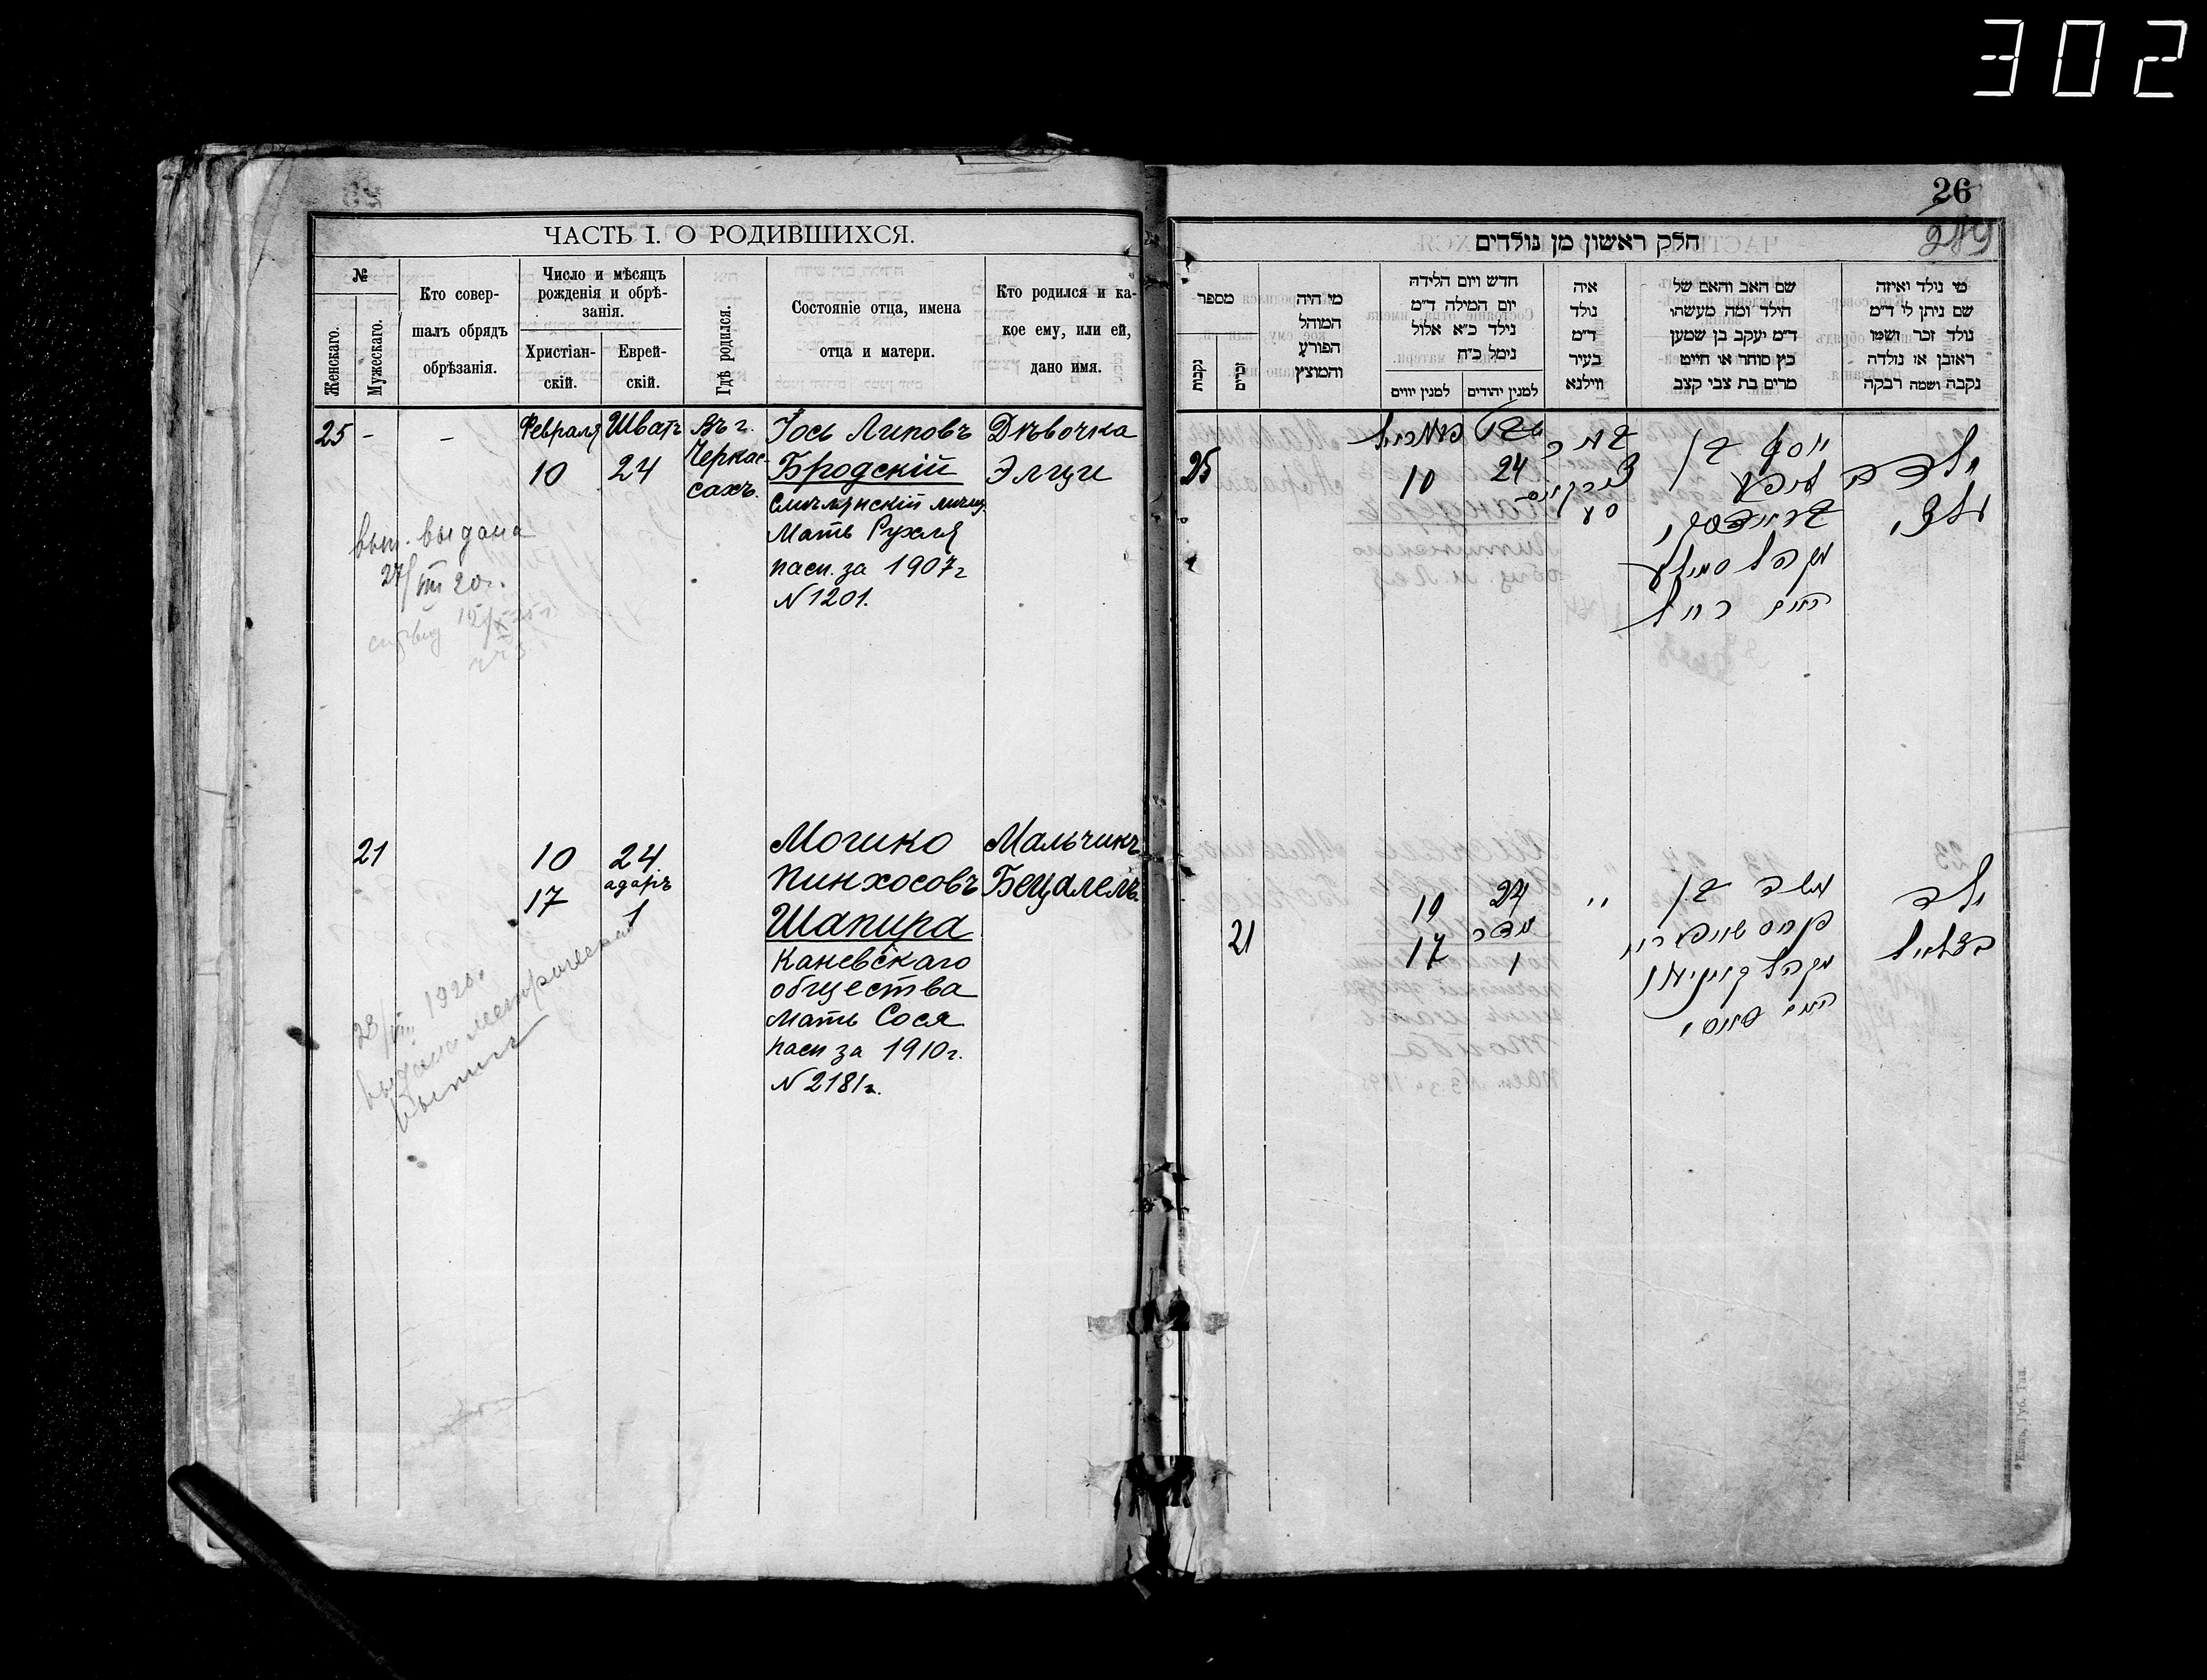 302
ЧАСТЬ I. О РОДИВШИХСЯ.
№
Женскаго.
Мужескаго.
Кто совер-
шалъ обрядъ
обрѣзанія.
Число и мѣсяцъ
рожденія и обрѣ-
занія.
Христіан-
скій.
Еврей-
скій.
Гдѣ родился.
Состояніе отца, имена
отца и матери.
Кто родился и ка-
кое ему, или ей,
дано имя.
25 - -
Февраля
10
Шватъ
24
Въ г.
Черкас-
сахъ.
Іось Липовъ
Бродскій
Смѣлянскій мѣщ.
Мать Рухля
пасп. за 1907 г
N 1201.
Дѣвочка
Элци
вып. выдана
27/VIII 20 г.
21
10
17
24
адаръ
1
Мошко
Пинхосовъ
Шапира
Каневскаго
общества
Мать Сося
пасп за 1910 г.
N 2181 г.
Мальчикъ
Бецалелъ.
23/VIII 1920 г.
выдана метрическая
выпись
26
חלק ראשון מן נולדים
מספר
נקבות
זכרים
מי היה
המוהל
הפורע
והמוצץ
חדש ויום הלידה
יום המילה ד״מ
נילד כ״א אלול
נימל כ״ח
למנין יווים
למנין יהודים
איה
נולד
ד״מ
בעיר
ווילנא
שם האב והאם של
הילד ומה מעשהו
ד״מ יעקב בן שמעון
כץ סוחר או חייט
מרים בת צבי קצב
מי נולד ואיזה
שם ניתן לו ד״מ
נולד זכר ושמו
ראובן או נולדה
נקבה ושמה רבקה
25
פעברואר
10
שבט
24
יוסף בן
ליפא
בראדסקי
מקהל סמילא
האם רחל
ילדה
עלצי
21
10
17
24
אדר
1
״
משה בן
פנחס שאפירא
האם סאסי
ילד
בצלאל